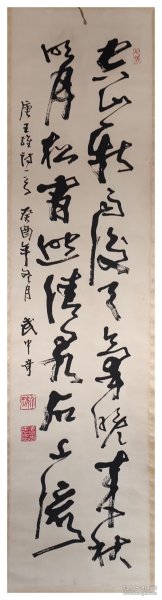 空山新雨後天氣晚来秋
明月松間照清泉石上流
唐王維詩 癸酉年 月 武中奇